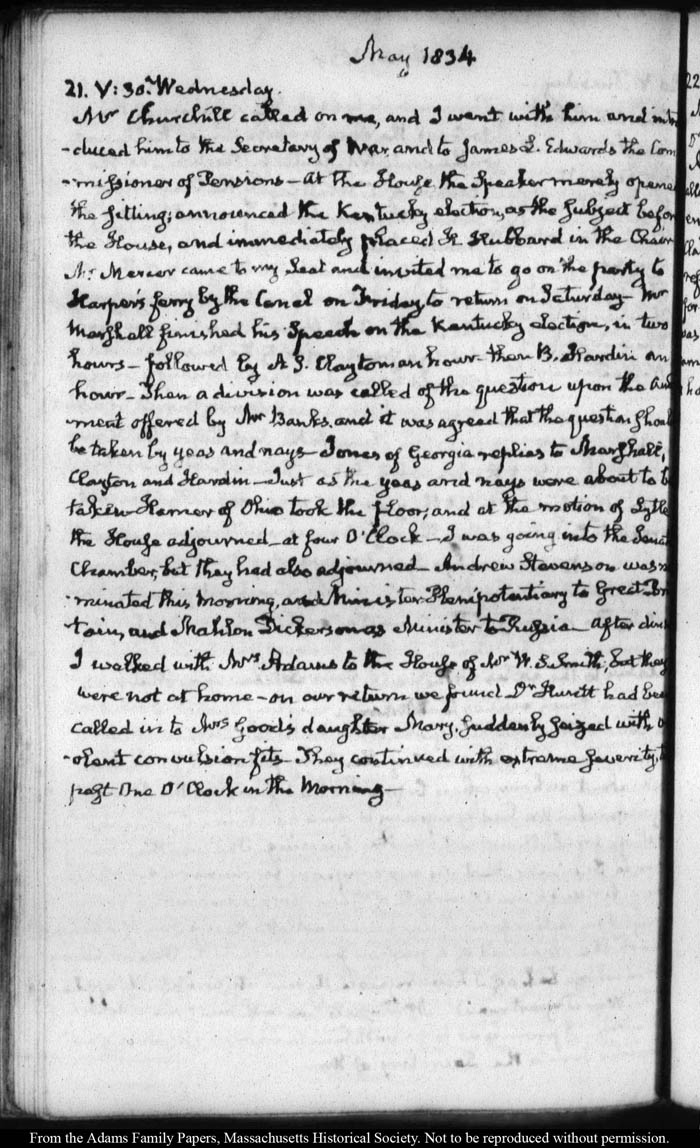 May 1834
21. V:30. Wednesday.
Mr Churchill called on me, and I went with him and intro
-duced him to the Secretary of War, and to James L. Edwards the Com
-missioner of Pensions — At the House, the Speaker merely opened
the sitting; announced the Kentucky election, as the subject before
the House, and immediately placed H. Hubbard in the Chair
Mr Mercer came to my Seat and invited me to go on the party to
Harper's ferry by the Canal on Friday, to return on Saturday — Mr
Marshall finished his Speech on the Kentucky election, in two
hours — followed by A. S. Clayton an hour — then B. Hardin an
hour — Then a division was called of the question upon the
ment offered by Mr Banks, and it was agreed that the question shou
be taken by yeas and nays — Jones of Georgia replies to Marshall,
Clayton and Hardin — Just as the yeas and nays were about to b
taken Hamer of Ohio took the floor, and at the motion of Lytle
the House adjourned — at four O'Clock — I was going into the Senat
Chamber, but they had also adjourned — Andrew Stevenson was n
-minated this Morning, as Minister Plenipotentiary to Great Bri
tain, and Mahlon Dickerson as Minister to Russia — After din
I walked with Mrs Adams to the House of Mr W. S. Smith, but they
were not at home — on our return we found Dr Huntt had bee
called in to Mrs Good's daughter Mary, suddenly seized with v
-olent convulsion fits — They continued with extreme severity, t
past One O'Clock in the Morning —
22
From the Adams Family Papers, Massachusetts Historical Society. Not to be reproduced without permission.